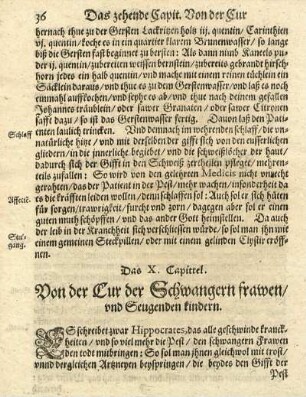 36 Das zehende Capit. Von der Cur
hernach thue zu der Gersten Lackritzen holz iij. quentin / Carinthien
vj. quentin / koche es in ein quartier klarem Brunnenwasser / so lange
biß die Gersten fast beginnet zu bersten: Als dann nimb Kaneels pulv-
er ij. quentin / zubereiten weissen bernstein / zubereits gebrandt hirsch-
horn jedes ein halb quentin / vnd mache mit einem reinen tüchlein ein
Säcklein daraus / vnd thue es zu dem Gerstenwasser / vnd laß es noch
einmahl auffkochen / vnd thue nach deinem gefallen
Johannes träublein / oder sawr Granaten / oder sawr Citronen
safft dazu / so ist das Gerstenwasser fertig. Dauon laß den Pati-
enten laulich trincken. Vnd demnach im wehrenden schlaff / die vn-
Schlaff
natürliche hitz / vnd mit derselben der gifft sich von den eusserlichen
gliedern / in die innerliche begiebet / vnd die schweißlöcher der haut /
dadurch sich der Gifft in den Schweiß zertheilen pfleget / mehren-
teils zufallen: So wird von den gelehrten Medicis nicht vnrecht
gerahten / das der Patient in der Pest / mehr wachen / insonderheit da
Affecte.
es die kräfften leiden wollen / denn schlaffen sol: Auch sol er sich hüten
für sorgen / trawrigkeit / furcht vnd zorn / dagegen aber sol er einen
guten muth schöpffen / vnd das ander Gott heimstellen. Da auch
Stul-
gang.
der leib in der Kranckheit sich verschliessen würde / so sol man ihn mit
einem gemeinen Steckpillen / oder mit einem gelinden Clystir eröff-
nen.
Das X. Capittel.
Von der Cur der Schwangern frawen /
vnd Seugenden kindern.
ES schreibet zwar Hippocrates, das alle geschwinde kranck-
heiten / vnd so viel mehr die Pest / den schwangern Frawen
den todt mitbringen: So sol man jhnen gleichwol mit trost /
vnd dergleichen Artzneyen beyspringen / die beydes den Gifft der
Pest